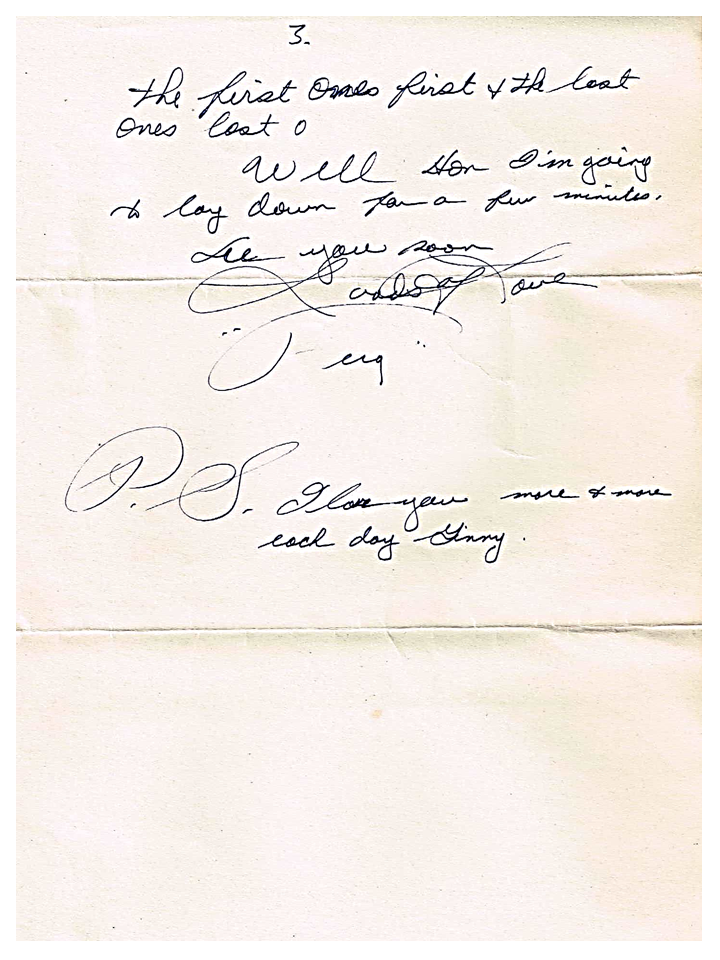 3.
the first ones first & the last
ones last o
Well Hon I'm going
to lay down for a few minutes.
See you soon
Loads of Love
"Ferg"
P.S. I love you more & more
each day Ginny.